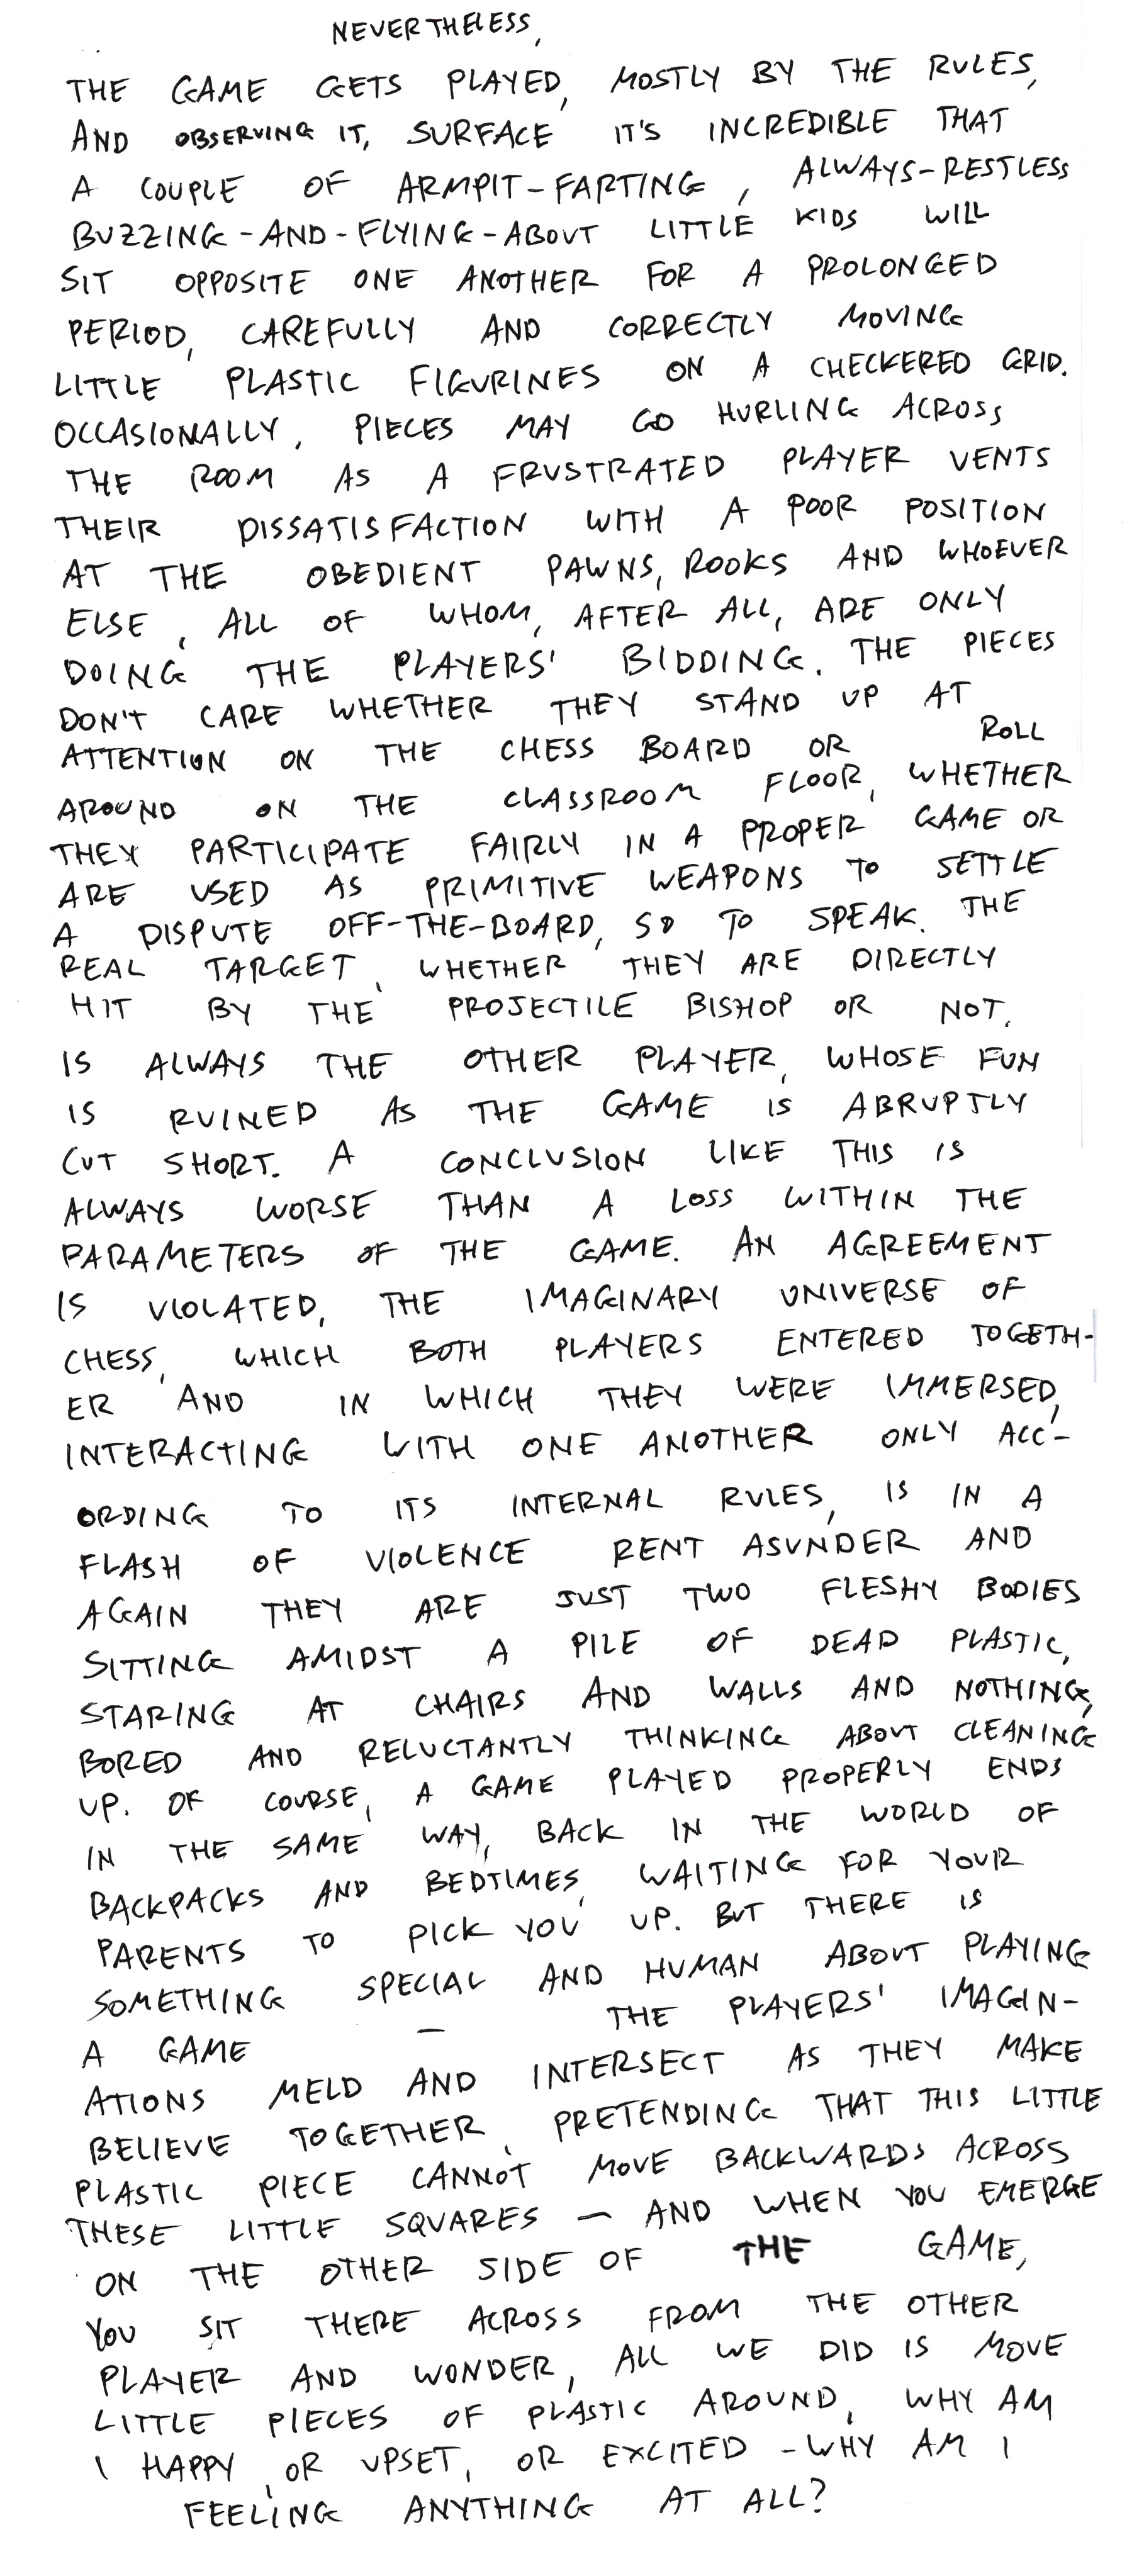 NEVERTHELESS,
THE GAME GETS PLAYED, MOSTLY BY THE RULES,
AND OBSERVING IT, SURFACE IT'S INCREDIBLE THAT
A COUPLE OF ARMPIT-FARTING, ALWAYS-RESTLESS
BUZZING-AND-FLYING-ABOUT LITTLE KIDS WILL
SIT OPPOSITE ONE ANOTHER FOR A PROLONGED
PERIOD, CAREFULLY AND CORRECTLY MOVING
LITTLE PLASTIC FIGURINES ON A CHECKERED GRID.
OCCASIONALLY, PIECES MAY GO HURLING ACROSS
THE ROOM AS A FRUSTRATED PLAYER VENTS
THEIR DISSATISFACTION WITH A POOR POSITION
AT THE OBEDIENT PAWNS, ROOKS AND WHOEVER
ELSE, ALL OF WHOM, AFTER ALL, ARE ONLY
DOING THE PLAYERS' BIDDING. THE PIECES
DON'T CARE WHETHER THEY STAND UP AT
ATTENTION ON THE CHESS BOARD OR ROLL
AROUND ON THE CLASSROOM FLOOR, WHETHER
THEY PARTICIPATE FAIRLY IN A PROPER GAME OR
ARE USED AS PRIMITIVE WEAPONS TO SETTLE
A DISPUTE OFF-THE-BOARD, SO TO SPEAK. THE
REAL TARGET, WHETHER THEY ARE DIRECTLY
HIT BY THE PROJECTILE BISHOP OR NOT,
IS ALWAYS THE OTHER PLAYER, WHOSE FUN
IS RUINED AS THE GAME IS ABRUPTLY
CUT SHORT. A CONCLUSION LIKE THIS IS
ALWAYS WORSE THAN A LOSS WITHIN THE
PARAMETERS OF THE GAME. AN AGREEMENT
IS VIOLATED, THE IMAGINARY UNIVERSE OF
CHESS, WHICH BOTH PLAYERS ENTERED TOGETH-
ER AND IN WHICH THEY WERE IMMERSED,
INTERACTING WITH ONE ANOTHER ONLY ACC-
ORDING TO ITS INTERNAL RULES, IS IN A
FLASH OF VIOLENCE RENT ASUNDER AND
AGAIN THEY ARE JUST TWO FLESHY BODIES
SITTING AMIDST A PILE OF DEAD PLASTIC,
STARING AT CHAIRS AND WALLS AND NOTHING,
BORED AND RELUCTANTLY THINKING ABOUT CLEANING
UP. OF COURSE, A GAME PLAYED PROPERLY ENDS
IN THE SAME WAY, BACK IN THE WORLD OF
BACKPACKS AND BEDTIMES, WAITING FOR YOUR
PARENTS TO PICK YOU UP. BUT THERE IS
SOMETHING SPECIAL AND HUMAN ABOUT PLAYING
A GAME — THE PLAYERS' IMAGIN-
ATIONS MELD AND INTERSECT AS THEY MAKE
BELIEVE TOGETHER, PRETENDING THAT THIS LITTLE
PLASTIC PIECE CANNOT MOVE BACKWARDS ACROSS
THESE LITTLE SQUARES — AND WHEN YOU EMERGE
ON THE OTHER SIDE OF THE GAME,
YOU SIT THERE ACROSS FROM THE OTHER
PLAYER AND WONDER, ALL WE DID IS MOVE
LITTLE PIECES OF PLASTIC AROUND, WHY AM
I HAPPY, OR UPSET, OR EXCITED - WHY AM I
FEELING ANYTHING AT ALL?